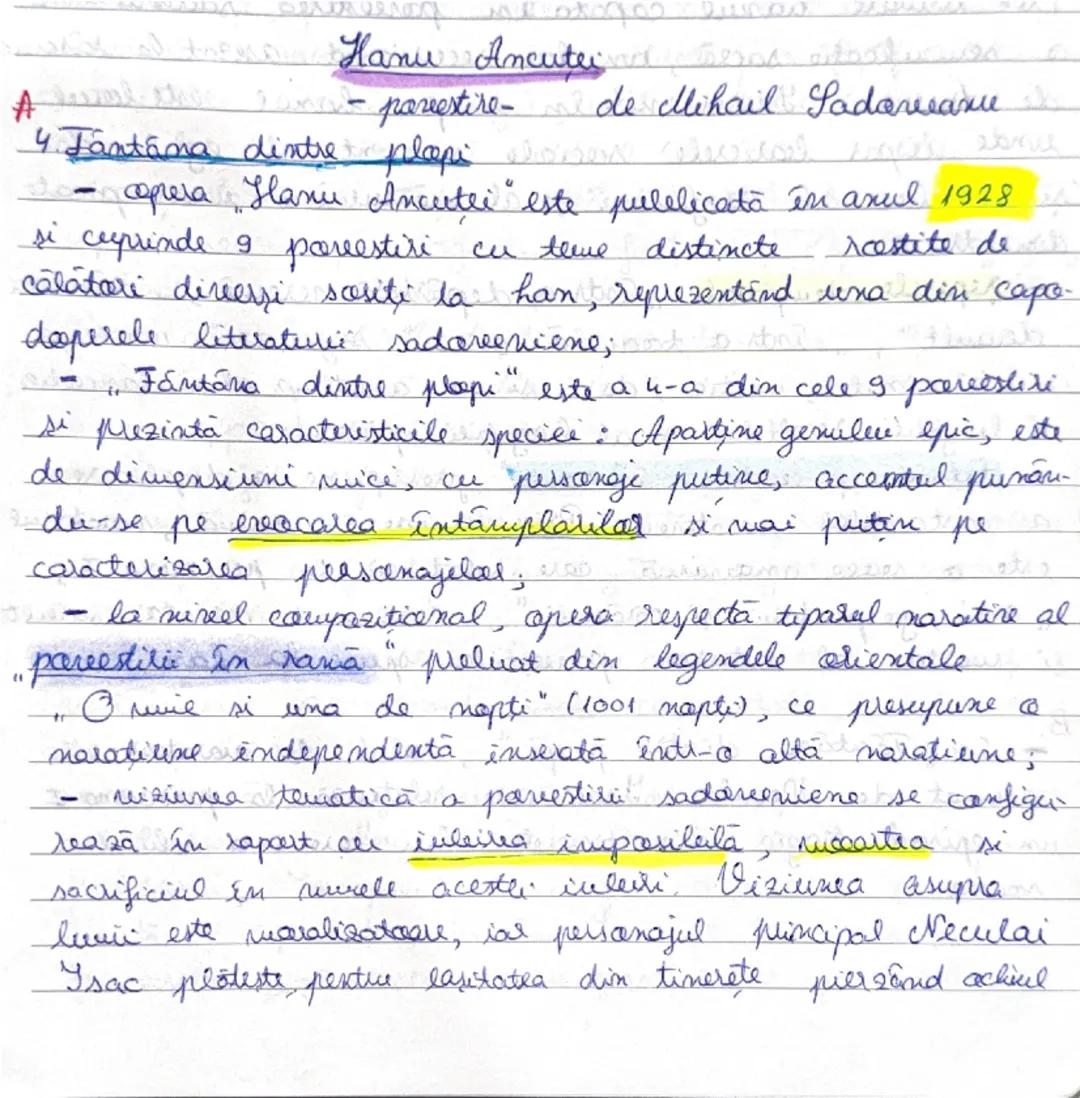 Hanu Ancuței
A - povestire - de Mihail Sadoveanu
4. Fântâna dintre plopi
- opera „Hanu Ancuței" este publicată în anul 1928
si cuprinde 9 povestiri cu teme distincte rostite de
călători diverși sosiți la han, reprezentând una din capo-
doperele literaturii sadoveniene;
- „Fântâna dintre plopi" este a 4-a din cele 9 povestiri
si prezintă caracteristicile speciei: Aparține genului epic, este
de dimensiuni mici, cu personaje puține, accentul punân-
du-se pe evocarea întâmplărilor si mai puțin pe
caracterizarea personajelor;
- la nivel compozițional, opera respectă tiparul narativ al
„povestirii în ramă" preluat din legendele orientale
„O mie si una de nopți" (1001 nopți), ce presupune o
narațiune independentă inserată într-o altă narațiune;
- viziunea tematică a povestirii sadoveniene se configu-
rează în raport cu iubirea imposibilă, moartea si
sacrificiul în numele acestei iubiri. Viziunea asupra
lumii este moralizatoare, iar personajul principal Neculai
Isac plătește pentru lașitatea din tinerețe pierzând ochiul